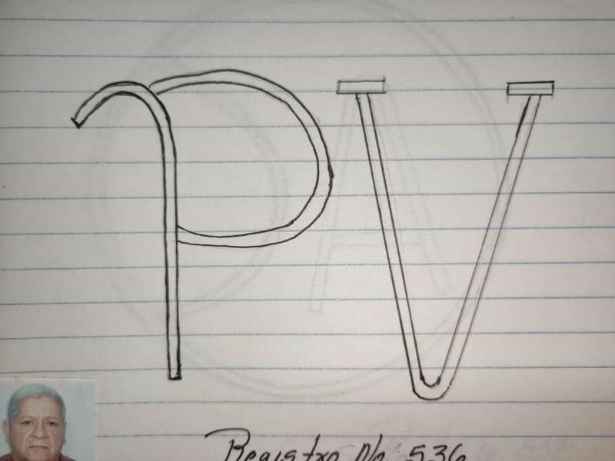 PV
Registro No 536